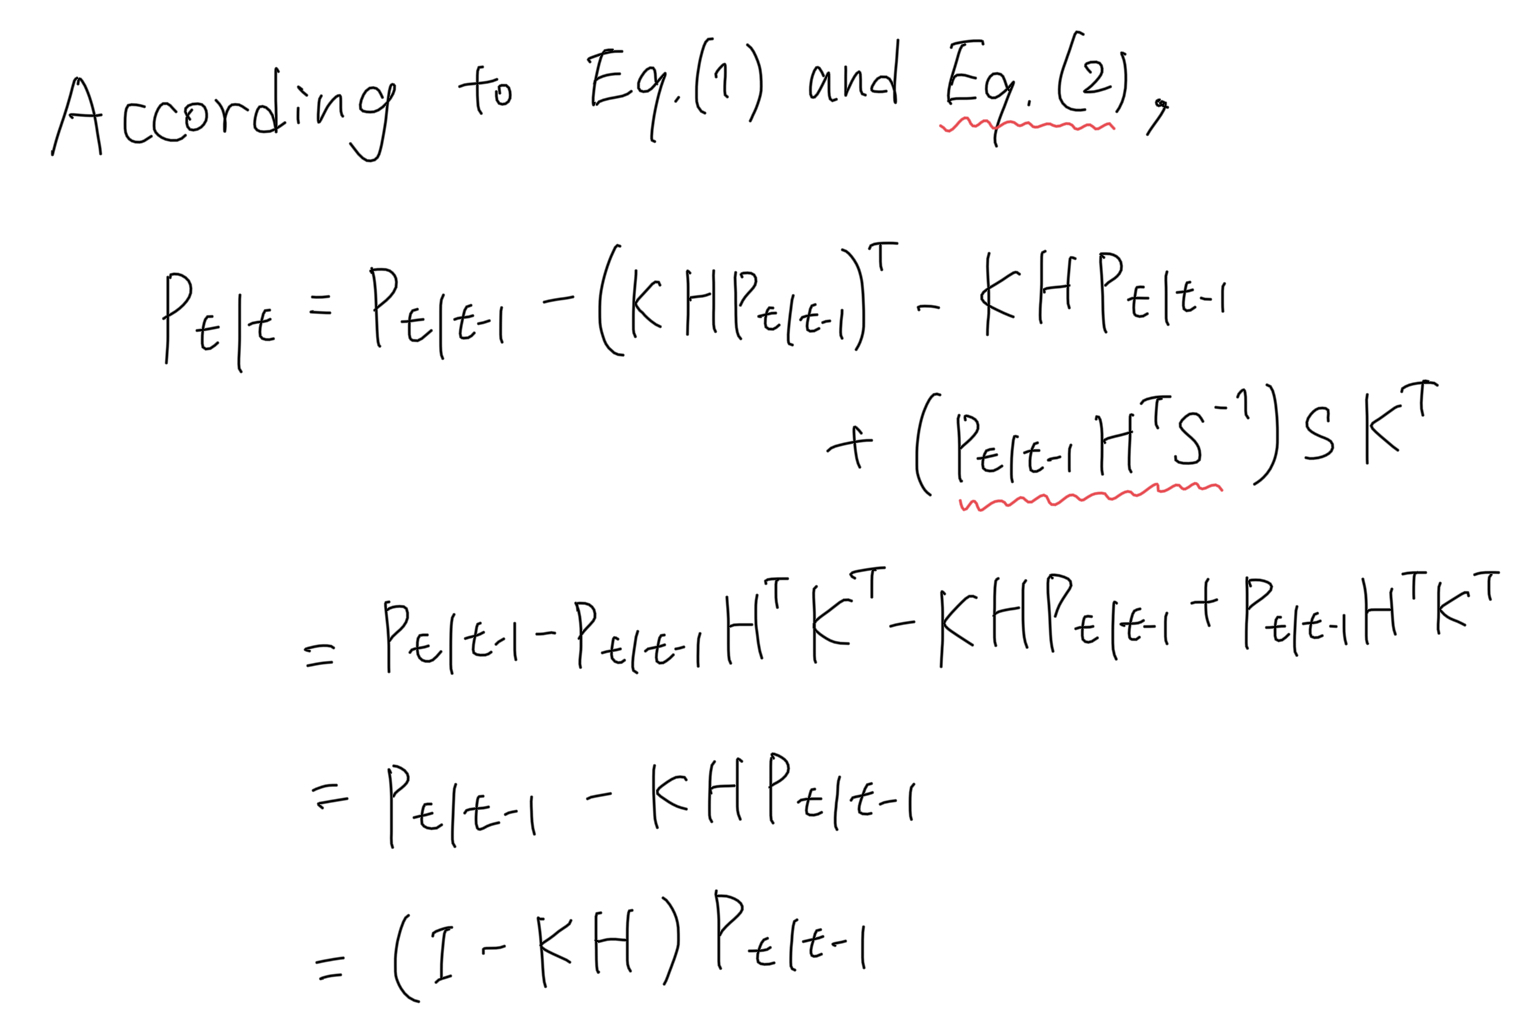 According to Eq.(1) and Eq.(2),
P_{t|t} = P_{t|t-1} - (KHP_{t|t-1})^T - KHP_{t|t-1}
+ (P_{t|t-1}H^TS^{-1})SK^T
= P_{t|t-1} - P_{t|t-1}H^TK^T - KHP_{t|t-1} + P_{t|t-1}H^TK^T
= P_{t|t-1} - KHP_{t|t-1}
= (I - KH)P_{t|t-1}